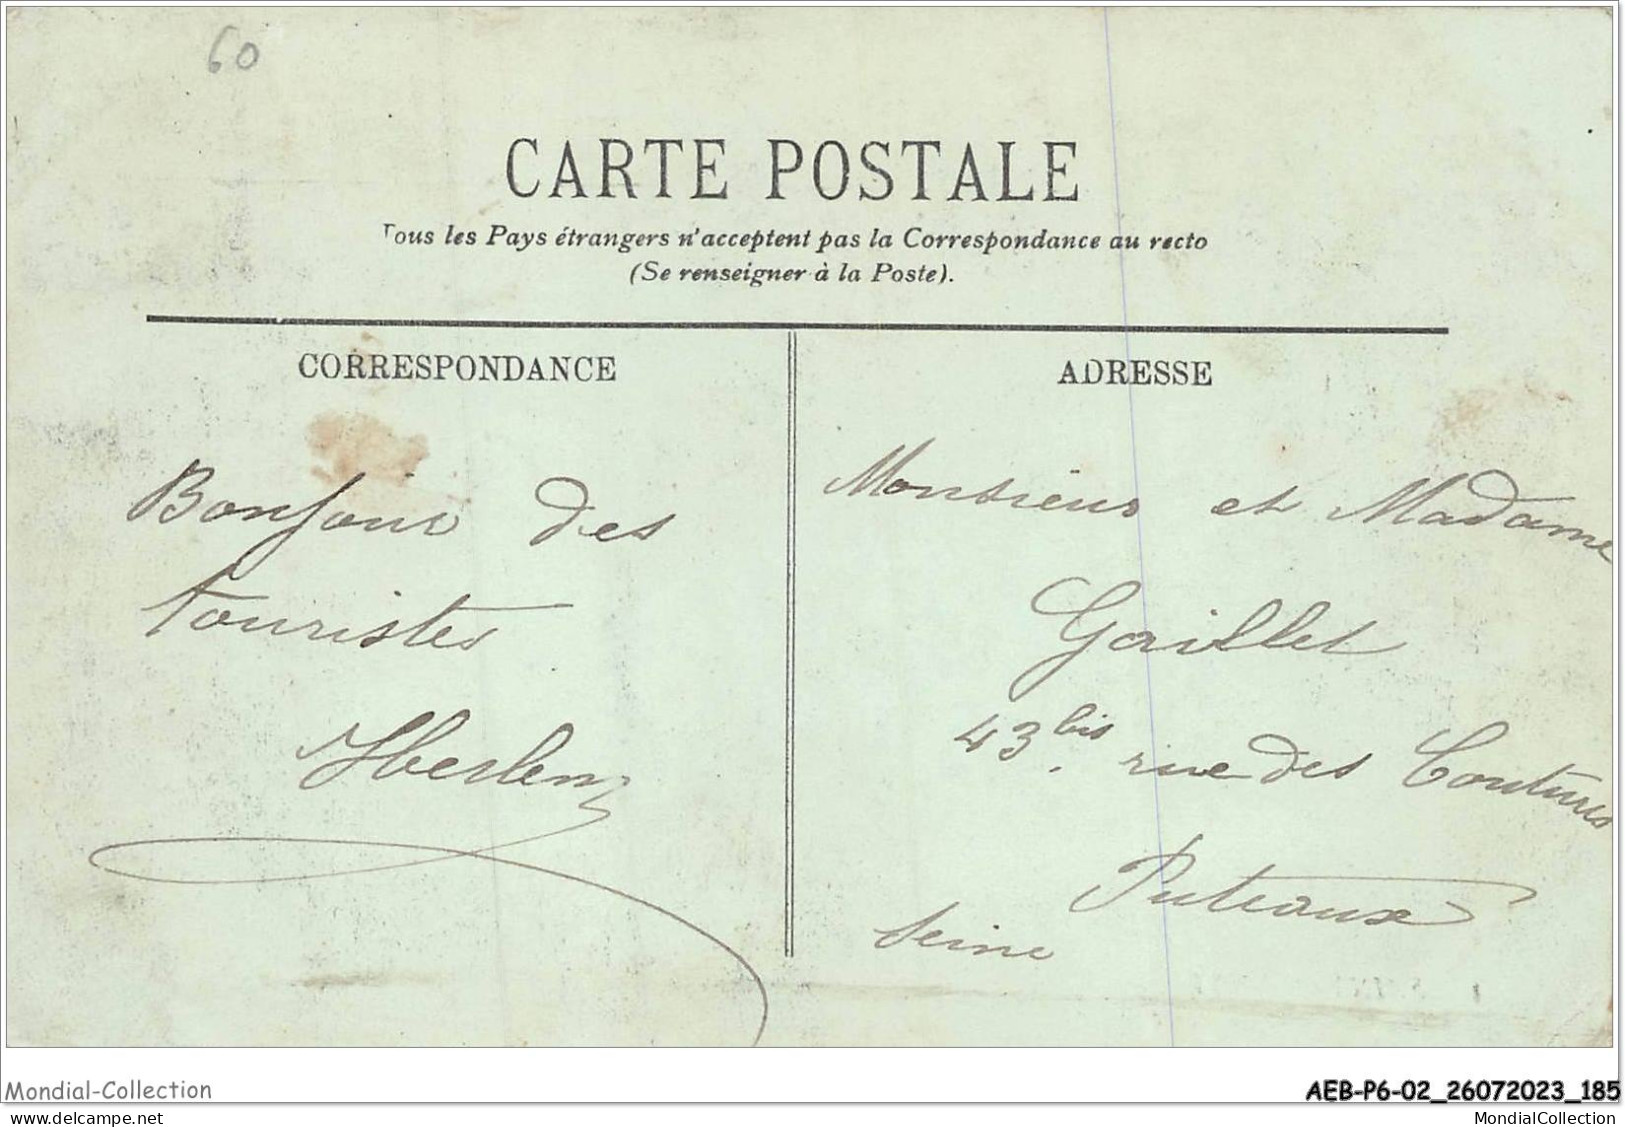 60
CARTE POSTALE
Tous les Pays étrangers n'acceptent pas la Correspondance au recto
(Se renseigner à la Poste).
CORRESPONDANCE
Bonjour des
touristes
ADRESSE
Monsieur et Madame
Gaillet
43 bis rue des Coutures
Puteaux
Seine
Mondial-Collection
AEB-P6-02_26072023_185
delcampe.net
MondialCollection